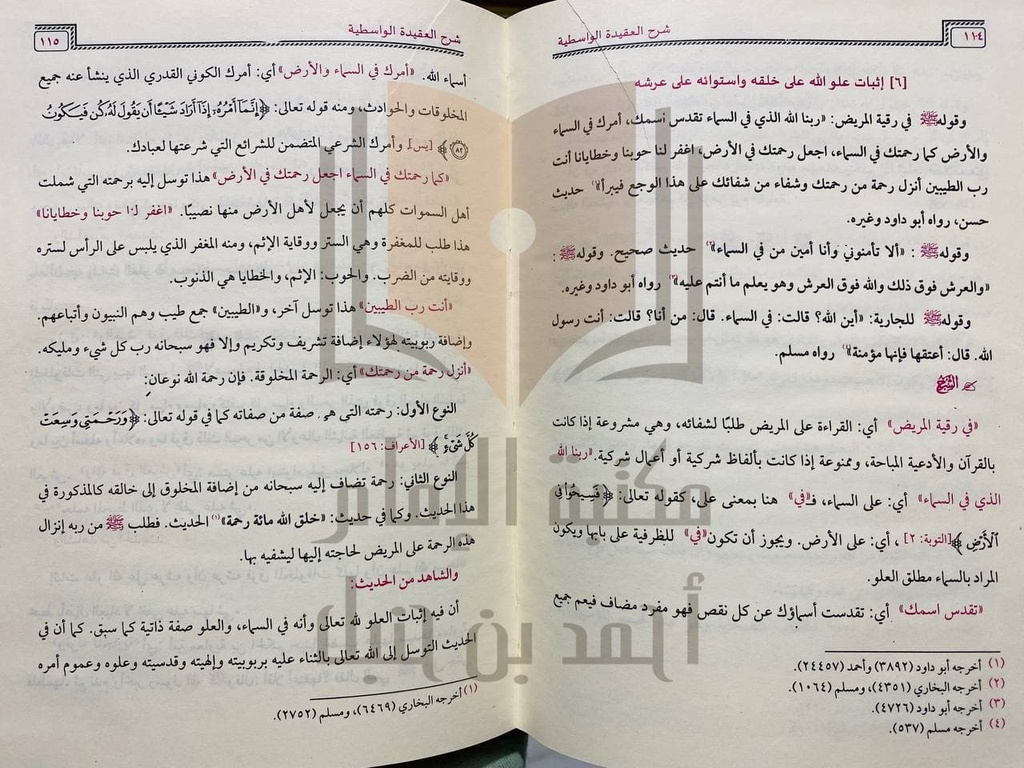 ١١٤
شرح العقيدة الواسطية
[٦] إثبات علو الله على خلقه واستوائه على عرشه
وقوله ﷺ في رقية المريض: «ربنا الله الذي في السماء تقدس اسمك، أمرك في السماء
والأرض كما رحمتك في السماء، اجعل رحمتك في الأرض، اغفر لنا حوبنا وخطايانا أنت
رب الطيبين أنزل رحمة من رحمتك وشفاء من شفائك على هذا الوجع فيبرأ»(١) حديث
حسن، رواه أبو داود وغيره.
وقوله ﷺ : «ألا تأمنوني وأنا أمين من في السماء»(٢) حديث صحيح. وقوله ﷺ :
«والعرش فوق ذلك والله فوق العرش وهو يعلم ما أنتم عليه»(٣) رواه أبو داود وغيره.
وقوله ﷺ للجارية: «أين الله؟ قالت: في السماء. قال: من أنا؟ قالت: أنت رسول
الله. قال: أعتقها فإنها مؤمنة»(٤) رواه مسلم.
الشرح
«في رقية المريض» أي: القراءة على المريض طلبًا لشفائه، وهي مشروعة إذا كانت
بالقرآن والأدعية المباحة، وممنوعة إذا كانت بألفاظ شركية أو أعمال شركية. «ربنا الله
الذي في السماء» أي: على السماء، فـ«في» هنا بمعنى على، كقوله تعالى: ﴿فَسِيحُوا۟ فِى
ٱلْأَرْضِ﴾ [التوبة: ٢]، أي: على الأرض. ويجوز أن تكون «في» للظرفية على بابها ويكون
المراد بالسماء مطلق العلو.
«تقدس اسمك» أي: تقدست أسماؤك عن كل نقص فهو مفرد مضاف فيعم جميع
(١) أخرجه أبو داود (٣٨٩٢) وأحمد (٢٤٤٥٧).
(٢) أخرجه البخاري (٤٣٥١)، ومسلم (١٠٦٤).
(٣) أخرجه أبو داود (٤٧٢٦).
(٤) أخرجه مسلم (٥٣٧).
شرح العقيدة الواسطية
١١٥
أسماء الله. «أمرك في السماء والأرض» أي: أمرك الكوني القدري الذي ينشأ عنه جميع
المخلوقات والحوادث، ومنه قوله تعالى: ﴿إِنَّمَآ أَمْرُهُۥٓ إِذَآ أَرَادَ شَيْـًٔا أَن يَقُولَ لَهُۥ كُن فَيَكُونُ
٨٢﴾ [يس] وأمرك الشرعي المتضمن للشرائع التي شرعتها لعبادك.
«كما رحمتك في السماء اجعل رحمتك في الأرض» هذا توسل إليه برحمته التي شملت
أهل السموات كلهم أن يجعل لأهل الأرض منها نصيبًا. «اغفر لنا حوبنا وخطايانا»
هذا طلب للمغفرة وهي الستر ووقاية الإثم، ومنه المغفر الذي يلبس على الرأس لستره
ووقايته من الضرب. والحوب: الإثم، والخطايا هي الذنوب.
«أنت رب الطيبين» هذا توسل آخر، و«الطيبين» جمع طيب وهم النبيون وأتباعهم.
وإضافة ربوبيته لهؤلاء إضافة تشريف وتكريم وإلا فهو سبحانه رب كل شيء ومليكه.
«أنزل رحمة من رحمتك» أي: الرحمة المخلوقة. فإن رحمة الله نوعان:
النوع الأول: رحمته التي هي صفة من صفاته كما في قوله تعالى: ﴿وَرَحْمَتِى وَسِعَتْ
كُلَّ شَىْءٍ﴾ [الأعراف: ١٥٦]
النوع الثاني: رحمة تضاف إليه سبحانه من إضافة المخلوق إلى خالقه كالمذكورة في
هذا الحديث. وكما في حديث: «خلق الله مائة رحمة»(١) الحديث. فطلب ﷺ من ربه إنزال
هذه الرحمة على المريض لحاجته إليها ليشفيه بها.
والشاهد من الحديث:
أن فيه إثبات العلو لله تعالى وأنه في السماء، والعلو صفة ذاتية كما سبق. كما أن في
الحديث التوسل إلى الله تعالى بالثناء عليه بربوبيته وإلهيته وقدسيته وعلوه وعموم أمره
(١) أخرجه البخاري (٦٤٦٩)، ومسلم (٢٧٥٢).
مكتبة الإمام
أحمد بن حنبل